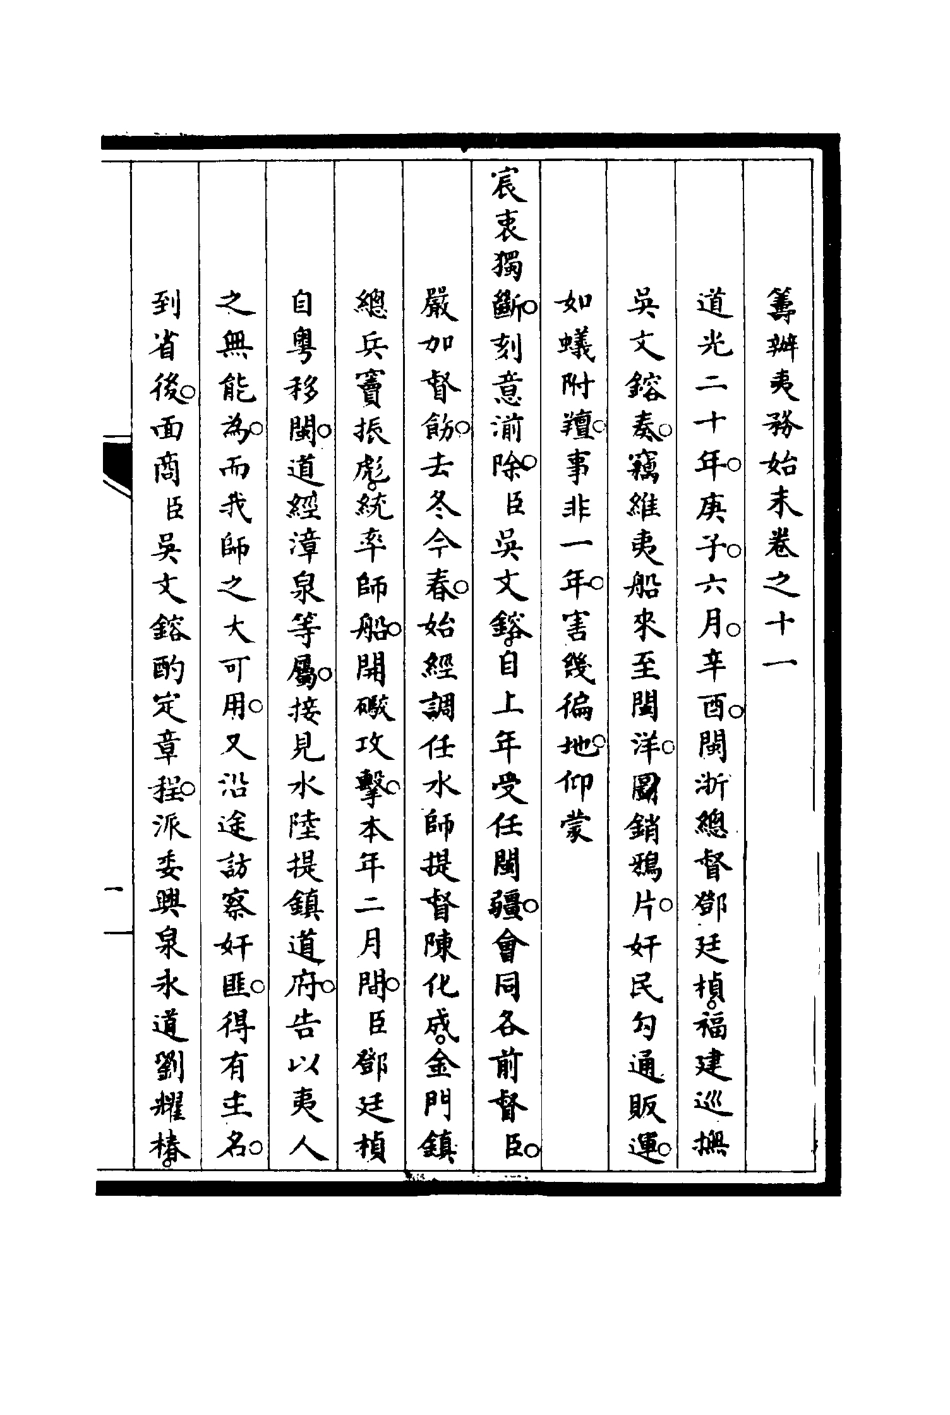 籌辦夷務始末卷之十一
道光二十年。庚子。六月。辛酉。閩浙總督鄧廷楨。福建巡撫
吳文鎔奏。竊維夷船來至閩洋。圖銷鴉片。奸民勾通販運。
如蟻附羶。事非一年。害幾徧地。仰蒙
宸衷獨斷。刻意湔除。臣吳文鎔。自上年受任閩疆。會同各前督臣。
嚴加督飭。去冬今春。始經調任水師提督陳化成。金門鎮
總兵竇振彪。統率師船。開礮攻擊。本年二月間。臣鄧廷楨
自粵移閩。道經漳泉等屬。接見水陸提鎮道府。告以夷人
之無能為。而我師之大可用。又沿途訪察奸匪。得有主名。
到省後。面商臣吳文鎔酌定章程。派委興泉永道劉耀椿。
一